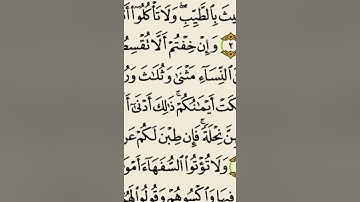 بِٱلطَّيِّبِ ۖ وَلَا تَأْكُلُوٓا۟
٢ وَإِنْ خِفْتُمْ أَلَّا تُقْسِطُ
ٱلنِّسَآءِ مَثْنَىٰ وَثُلَٰثَ وَرُ
كَتْ أَيْمَٰنُكُمْ ۚ ذَٰلِكَ أَدْنَىٰٓ
نَّ نِحْلَةً ۚ فَإِن طِبْنَ لَكُمْ عَن
وَلَا تُؤْتُوا۟ ٱلسُّفَهَآءَ أَمْوَ
فِيهَا وَٱكْسُوهُمْ وَقُولُوا۟ لَهُ